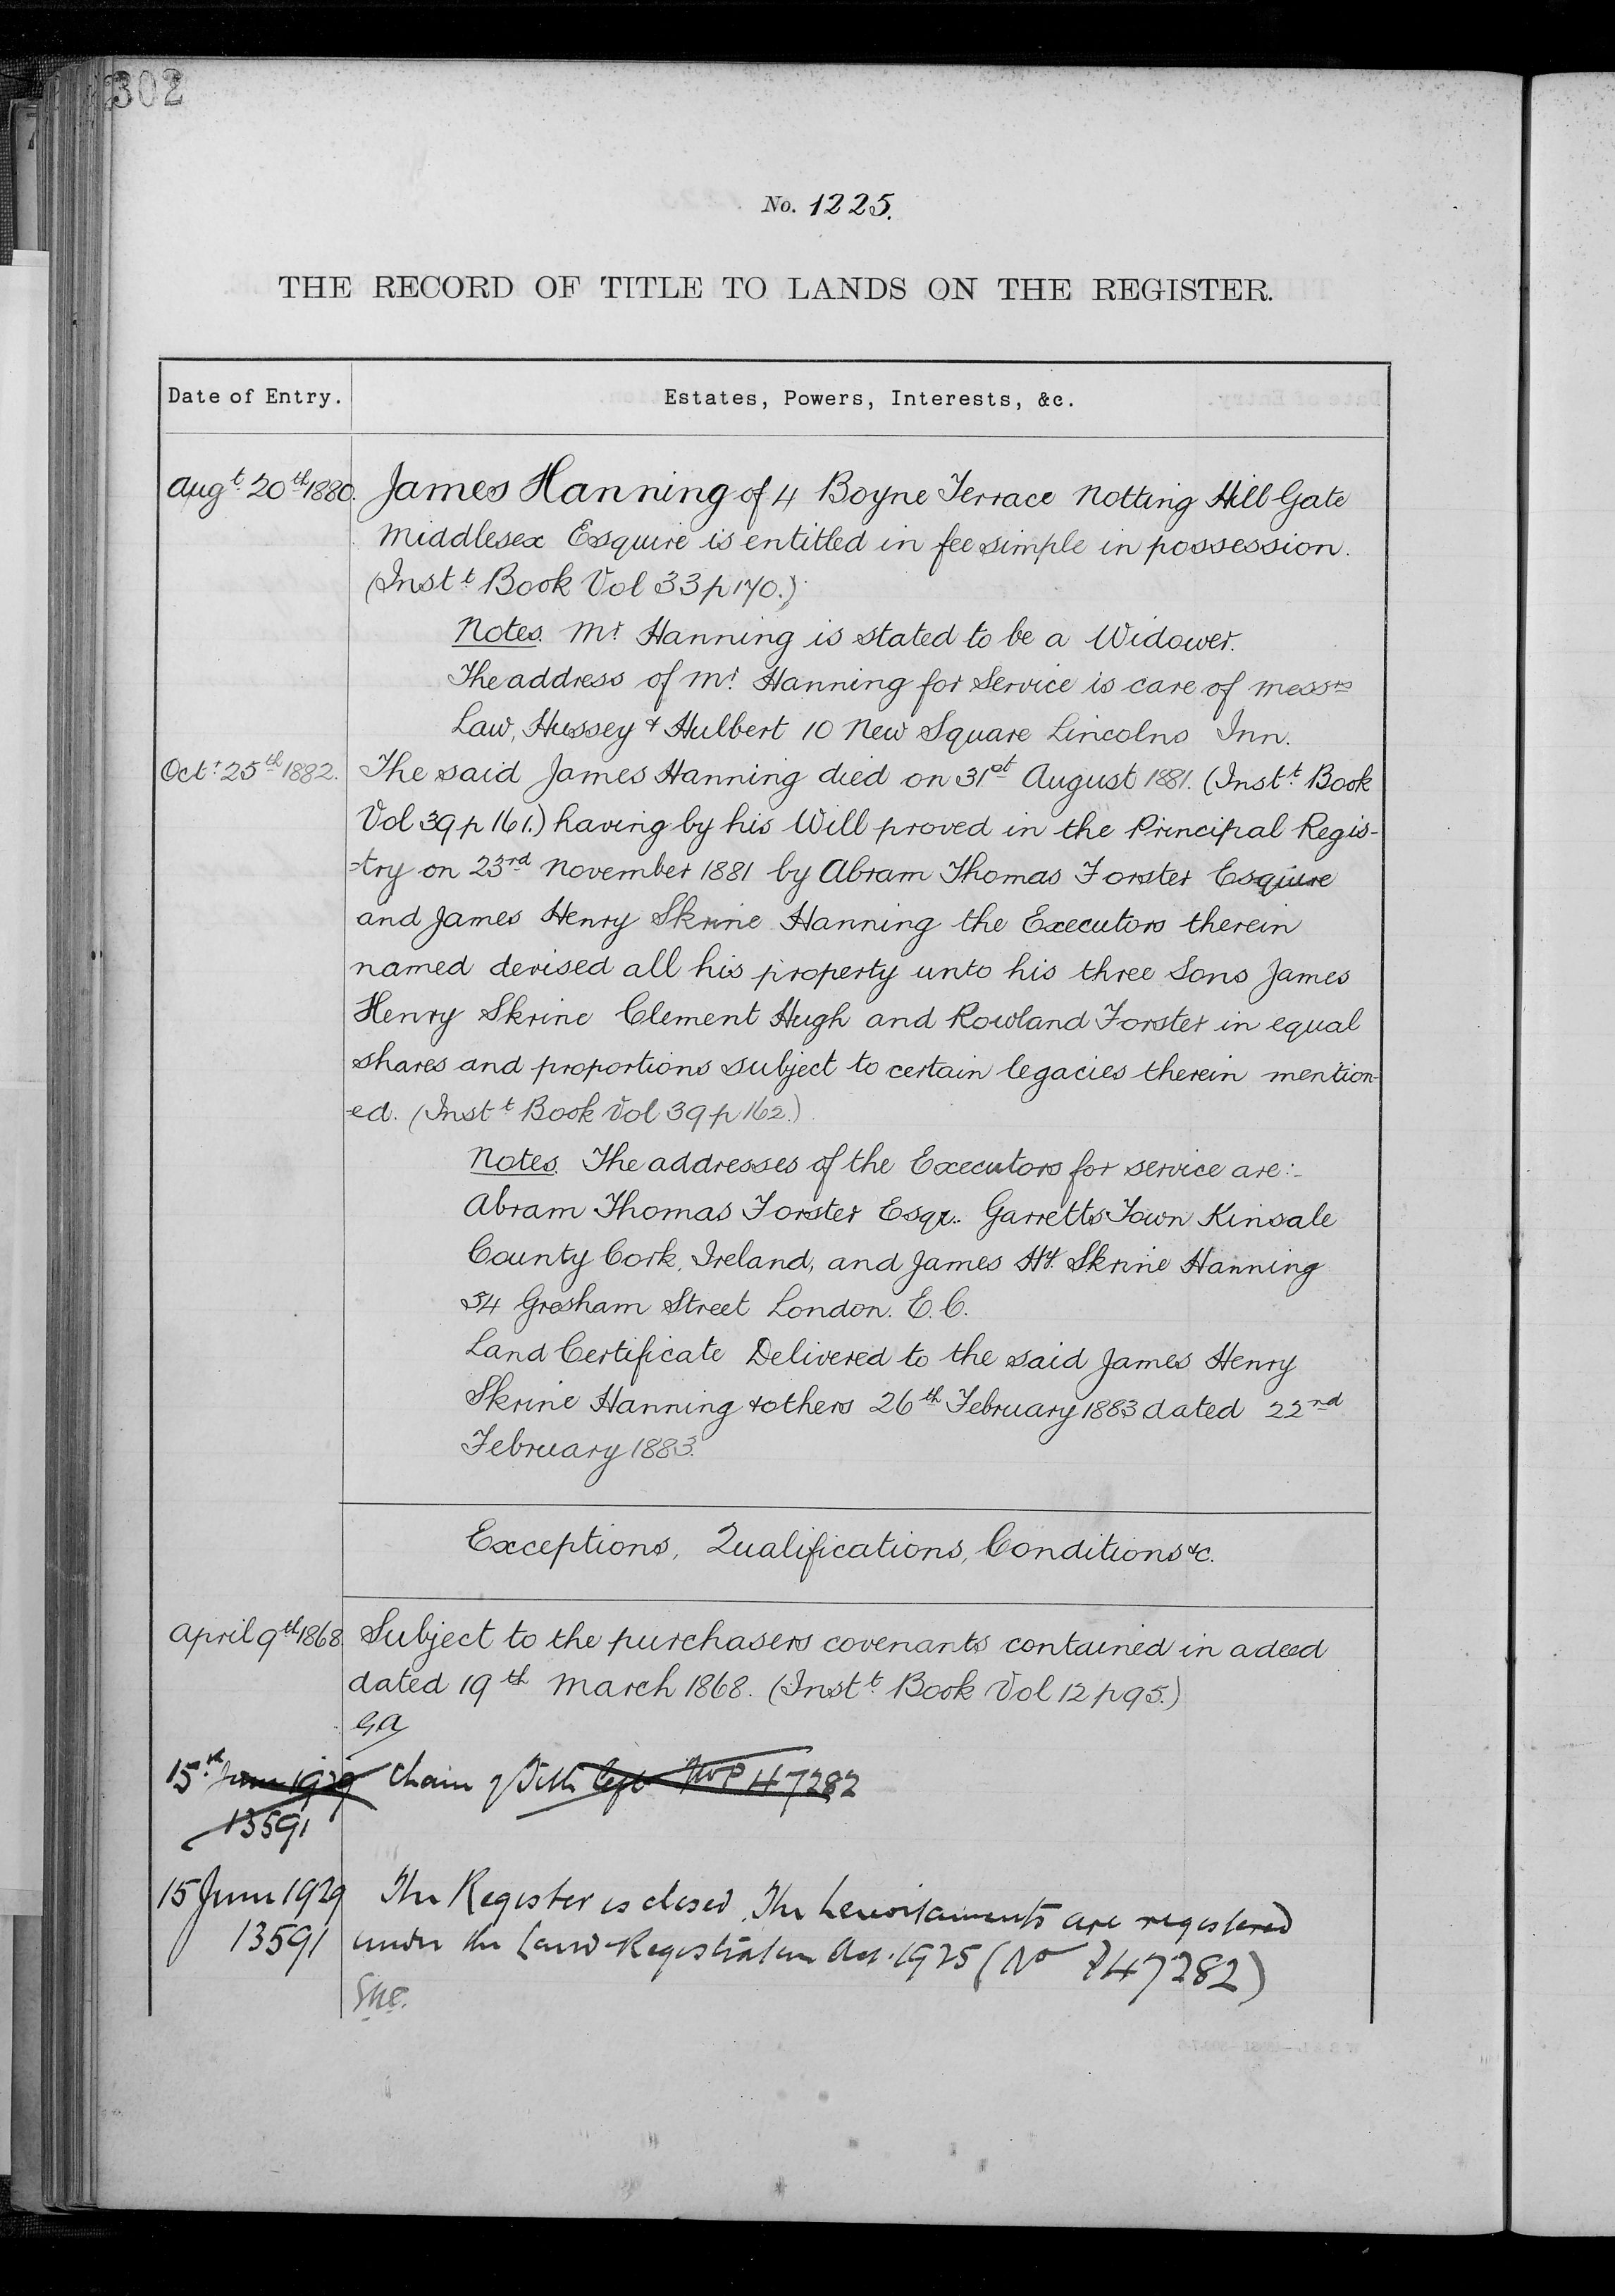 302
No. 1225.
THE RECORD OF TITLE TO LANDS ON THE REGISTER.
Date of Entry.
Estates, Powers, Interests, &c.
Augt 20th 1880. James Hanning of 4 Boyne Terrace Notting Hill Gate
Middlesex Esquire is entitled in fee simple in possession.
(Instt Book Vol 33 p 170.)
Notes. Mr Hanning is stated to be a Widower.
The address of Mr. Hanning for Service is care of Messrs
Law, Hussey & Hulbert 10 New Square Lincolns Inn.
Octr 25th 1882. The said James Hanning died on 31st August 1881. (Instt Book
Vol 39 p 161.) having by his Will proved in the Principal Regis-
-try on 23rd November 1881 by Abram Thomas Forster Esquire
and James Henry Skrine Hanning the Executors therein
named devised all his property unto his three Sons James
Henry Skrine Clement Hugh and Rowland Forster in equal
shares and proportions subject to certain legacies therein mention-
-ed. (Instt Book Vol 39 p 162.)
Notes. The addresses of the Executors for service are:-
Abram Thomas Forster Esqr. Garretts Town Kinsale
County Cork, Ireland, and James Hy. Skrine Hanning
54 Gresham Street London. E.C.
Land Certificate Delivered to the said James Henry
Skrine Hanning & others 26th February 1883 dated 22nd
February 1883.
Exceptions, Qualifications, Conditions &c.
April 9th 1868 Subject to the purchasers covenants contained in a deed
dated 19th March 1868. (Instt Book Vol 12 p 95.)
15th June 1929 Chain of Title P 47282
13591
15 June 1929 The Register is closed. The hereditaments are registered
13591 under the Land Registration Act. 1925 (No P 47282)